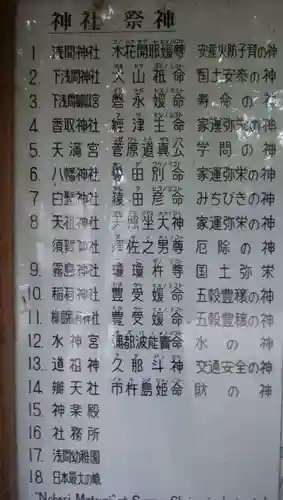 神社 祭神
1. 浅間神社 木花開耶媛尊 安産火防子育の神
2. 下浅間神社 大山祇命 国土安泰の神
3. 下浅間御旅宮 磐永媛命 寿命の神
4. 香取神社 經津主命 家運弥栄の神
5. 天満宮 菅原道真公 学問の神
6. 八幡神社 誉田別命 家運弥栄の神
7. 白髭神社 猿田彦命 みちびきの神
8. 天祖神社 坐天神 家運弥栄の神
須賀神社 佐之男尊 厄除の神
9. 霧島神社 瓊瓊杵尊 国土弥栄
10. 稲荷神社 豊受媛命 五穀豊穣の神
11. 稲荷神社 豊受媛命 五穀豊穣の神
12. 水神宮 波能賣命 水の神
13. 道祖神 久那斗神 交通安全の神
14. 辨天社 市杵島姫命 財の神
15. 神楽殿
16 社務所
17. 浅間幼稚園
18 日本最大の幟
"Nobori Matsuri" at